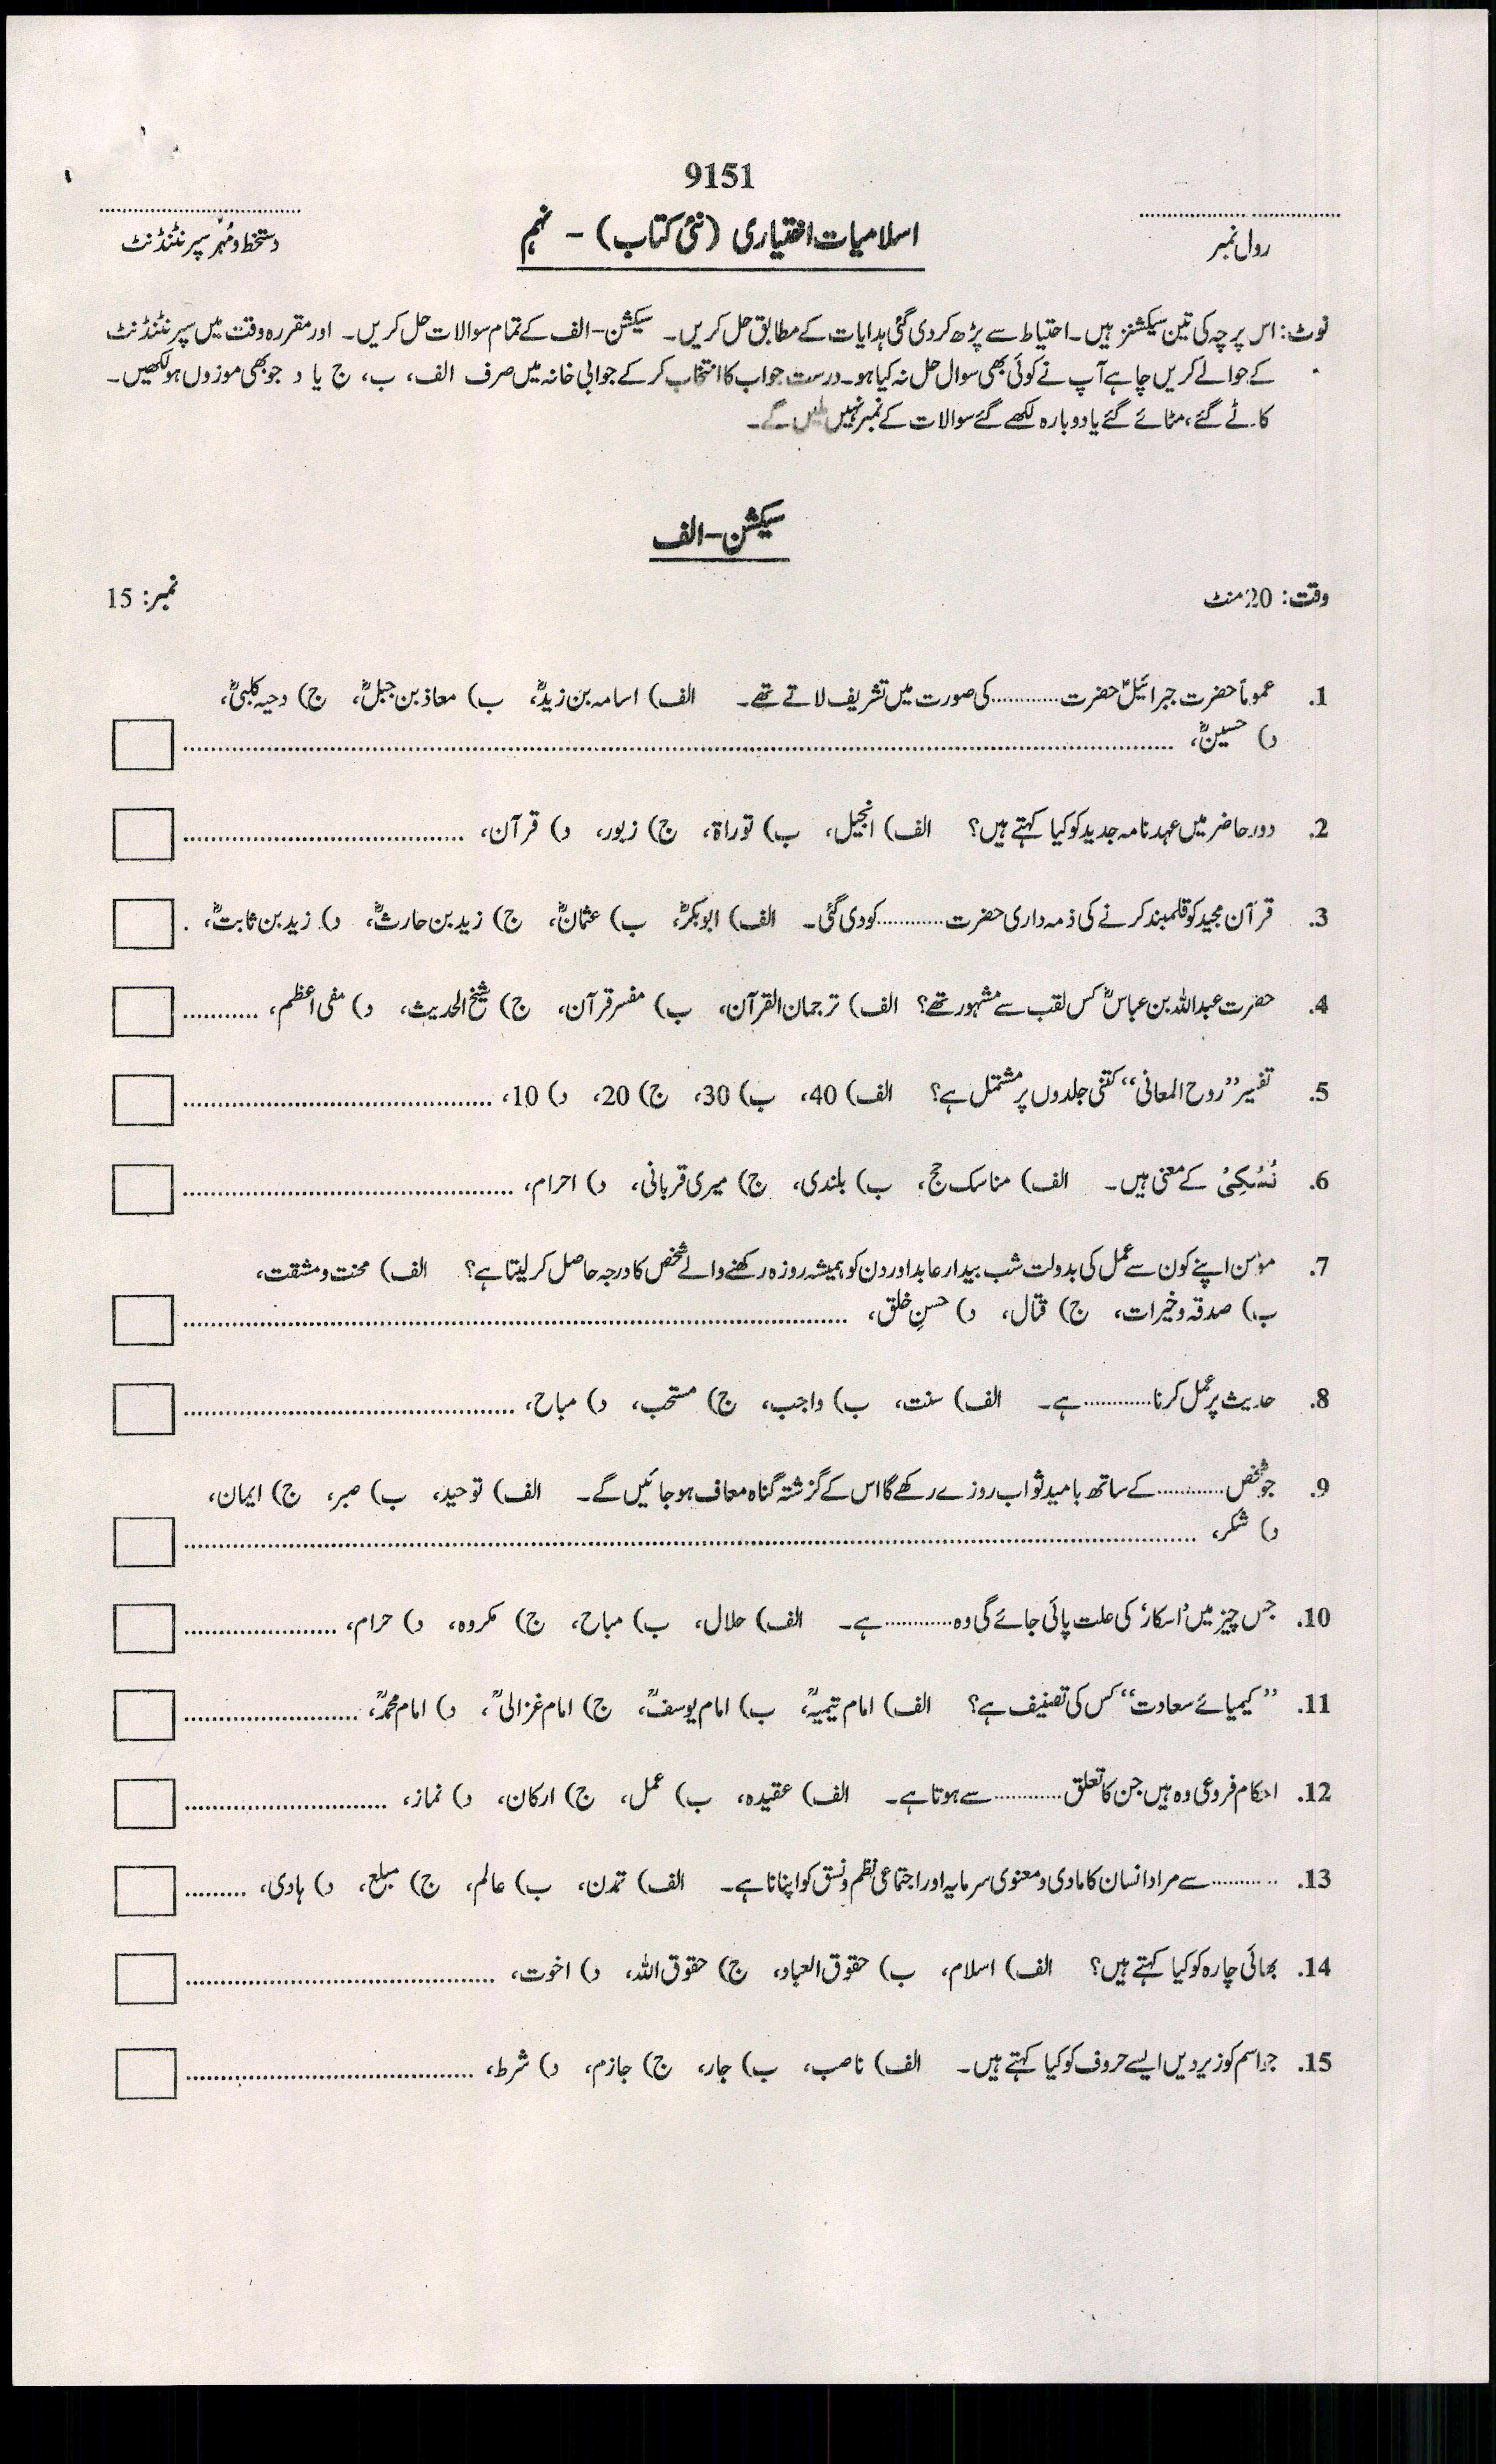 9151
رول نمبر
اسلامیات اختیاری (نئی کتاب) - نہم
دستخط و مُہر سپرنٹنڈنٹ
نوٹ: اس پرچہ کی تین سیکشنز ہیں۔ احتیاط سے پڑھ کر دی گئی ہدایات کے مطابق حل کریں۔ سیکشن-الف کے تمام سوالات حل کریں۔ اور مقررہ وقت میں سپرنٹنڈنٹ
کے حوالے کریں چاہے آپ نے کوئی بھی سوال حل نہ کیا ہو۔ درست جواب کا انتخاب کر کے جوابی خانہ میں صرف الف، ب، ج یا د جو بھی موزوں ہو لکھیں۔
کاٹے گئے، مٹائے گئے یا دوبارہ لکھے گئے سوالات کے نمبر نہیں ملیں گے۔
سیکشن-الف
وقت: 20 منٹ
نمبر: 15
1. عموماً حضرت جبرائیلؑ حضرت ............ کی صورت میں تشریف لاتے تھے۔ الف) اسامہ بن زیدؓ، ب) معاذ بن جبلؓ، ج) دحیہ کلبیؓ،
د) حسینؓ، ............
2. دور حاضر میں عہد نامہ جدید کو کیا کہتے ہیں؟ الف) انجیل، ب) توراۃ، ج) زبور، د) قرآن، ............
3. قرآن مجید کو قلمبند کرنے کی ذمہ داری حضرت ............ کو دی گئی۔ الف) ابوبکرؓ، ب) عثمانؓ، ج) زید بن حارثؓ، د) زید بن ثابتؓ، .
4. حضرت عبداللہ بن عباسؓ کس لقب سے مشہور تھے؟ الف) ترجمان القرآن، ب) مفسر قرآن، ج) شیخ الحدیث، د) مفی اعظم، ............
5. تفسیر ”روح المعانی“ کتنی جلدوں پر مشتمل ہے؟ الف) 40، ب) 30، ج) 20، د) 10، ............
6. نُسُکِیْ کے معنی ہیں۔ الف) مناسک حج، ب) بلندی، ج) میری قربانی، د) احرام، ............
7. مؤمن اپنے کون سے عمل کی بدولت شب بیدار عابد اور دن کو ہمیشہ روزہ رکھنے والے شخص کا درجہ حاصل کر لیتا ہے؟ الف) محنت و مشقت،
ب) صدقہ و خیرات، ج) قتال، د) حسنِ خلق، ............
8. حدیث پر عمل کرنا ............ ہے۔ الف) سنت، ب) واجب، ج) مستحب، د) مباح، ............
9. جو شخص ............ کے ساتھ با مید ثواب روزے رکھے گا اس کے گزشتہ گناہ معاف ہو جائیں گے۔ الف) توحید، ب) صبر، ج) ایمان،
د) شکر، ............
10. جس چیز میں ’اسکار‘ کی علت پائی جائے گی وہ ............ ہے۔ الف) حلال، ب) مباح، ج) مکروہ، د) حرام، ............
11. ”کیمیائے سعادت“ کس کی تصنیف ہے؟ الف) امام تیمیہؒ، ب) امام یوسفؒ، ج) امام غزالیؒ، د) امام محمدؒ، ............
12. احکام فروعی وہ ہیں جن کا تعلق ............ سے ہوتا ہے۔ الف) عقیدہ، ب) عمل، ج) ارکان، د) نماز، ............
13. ............ سے مراد انسان کا مادی و معنوی سرمایہ اور اجتماعی نظم و نسق کو اپنانا ہے۔ الف) تمدن، ب) عالم، ج) مبلغ، د) ہادی، .........
14. بھائی چارہ کو کیا کہتے ہیں؟ الف) اسلام، ب) حقوق العباد، ج) حقوق اللہ، د) اخوت، ............
15. جو اسم کو زیر دیں ایسے حروف کو کیا کہتے ہیں۔ الف) ناصب، ب) جار، ج) جازم، د) شرط، ............